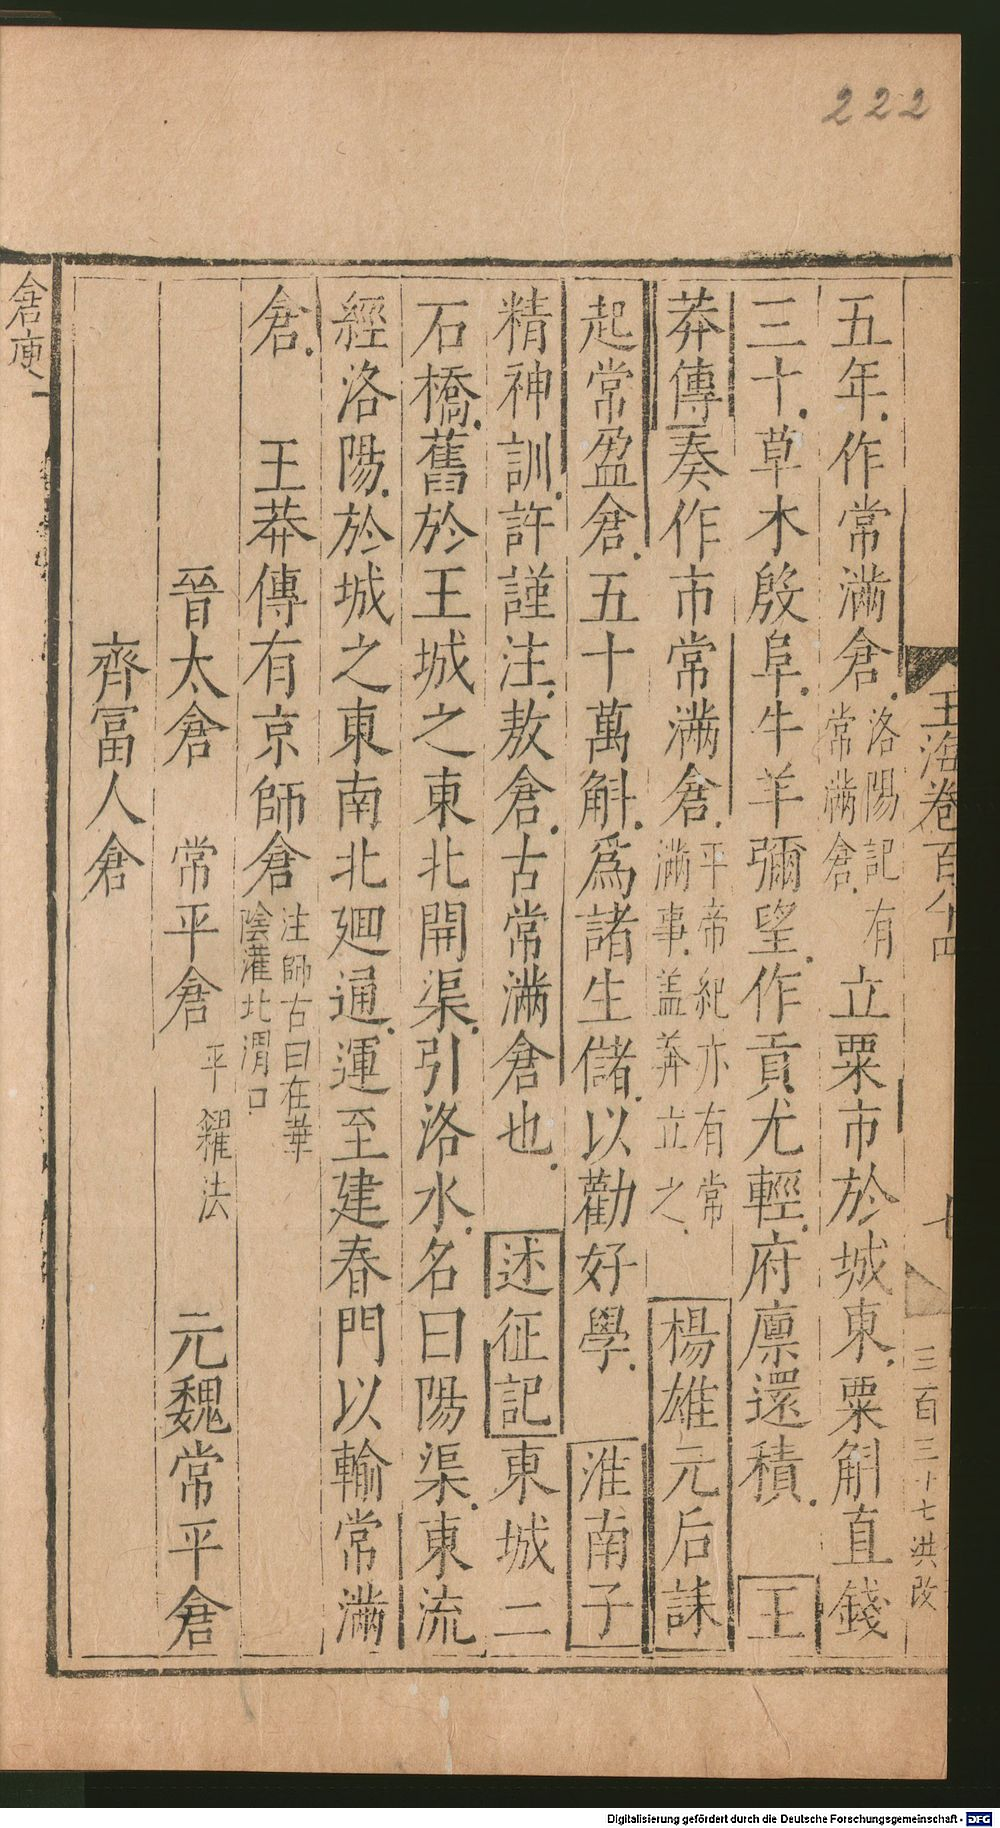 222
玉海卷百八十四
七
三百三十七洪改
五年作常滿倉洛陽記有常滿倉立粟市於城東粟斛直錢
三十草木殷阜牛羊彌望作貢尤輕府廪還積王
莽傳奏作市常滿倉平帝紀亦有常滿事蓋莽立之楊雄元后誄
起常盈倉五十萬斛爲諸生儲以勸好學淮南子
精神訓許謹注敖倉古常滿倉也述征記東城二
石橋舊於王城之東北開渠引洛水名曰陽渠東流
經洛陽於城之東南北廻通運至建春門以輸常滿
倉王莽傳有京師倉注師古曰在華陰灌北渭口
晉太倉常平倉平糴法元魏常平倉
齊富人倉
倉庾
Digitalisierung gefördert durch die Deutsche Forschungsgemeinschaft - DFG